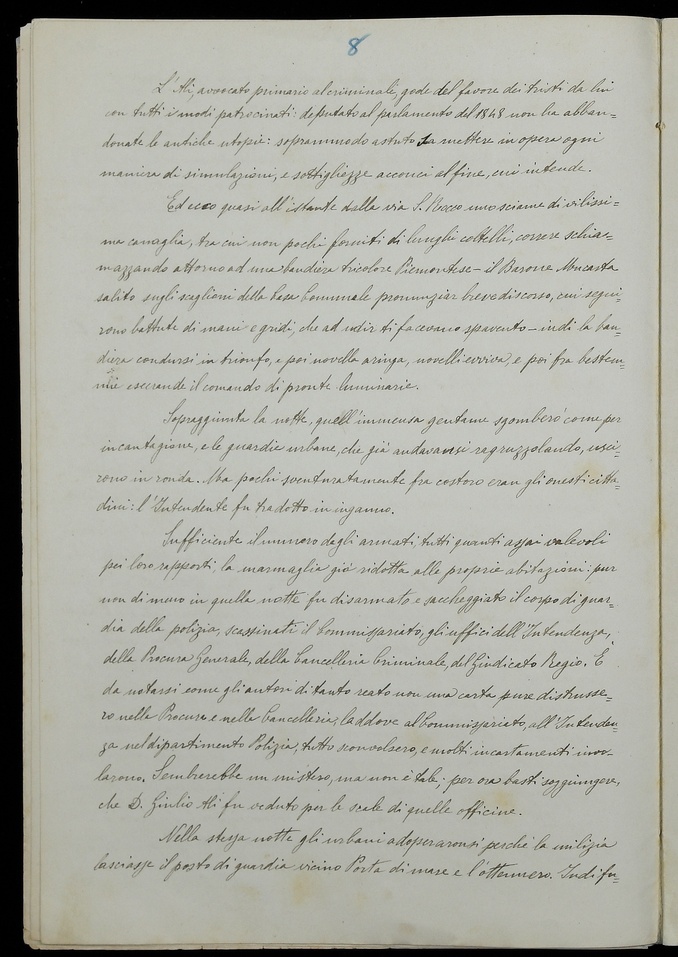 8
L'Alì, avvocato primario al criminale, gode del favore dei tristi da lui
con tutti i modi patrocinati: deputato al parlamento del 1848 non ha abban=
donate le antiche utopie: soprammodo astuto sa mettere in opera ogni
maniera di simulazioni, e sottigliezze acconci al fine, cui intende.
Ed ecco quasi all'istante dalla via S. Rocco uno sciame di vilissi=
ma canaglia, tra cui non pochi forniti di lunghi coltelli, correre schia=
mazzando attorno ad una bandiera tricolore Piemontese – il Barone Mocarta
salito sugli scaglioni della Casa Comunale pronunziar breve discorso, cui segui=
rono battute di mani e gridi, che ad udirti facevano spavento – indi la ban=
diera condursi in trionfo, e poi novella aringa, novelli evviva, e poi fra bestem=
mie esecrande il comando di pronte luminarie.
Sopraggiunta la notte, quell'immensa gentame sgomberò come per
incantagione, e le guardie urbane, che già andavansi ragruzzolando, usci=
rono in ronda. Ma pochi sventuratamente fra costoro eran gli onesti citta=
dini: l'Intendente fu tradotto in inganno.
Sufficiente il numero degli armati, tutti quanti assai valevoli
pei loro rapporti, la marmaglia già ridotta alle proprie abitazioni: pur
non di meno in quella notte fu disarmato e saccheggiato il corpo di guar=
dia della polizia, scassinati il Commissariato, gli uffici dell'Intendenza,
della Procura Generale, della Cancelleria Criminale, del Giudicato Regio. È
da notarsi come gli autori di tanto reato non una carta pure distrusse=
ro nella Procura e nelle Cancellerie, laddove al Commissariato, all'Intenden=
za nel dipartimento Polizia, tutto sconvolsero, e molti incartamenti invo=
larono. Sembrerebbe un mistero, ma non è tale; per ora basti soggiungere,
che D. Giulio Alì fu veduto per le scale di quelle officine.
Nella stessa notte gli urbani adoperaronsi perchè la milizia
lasciasse il posto di guardia vicino Porta di mare e l'ottennero. Indi fu=